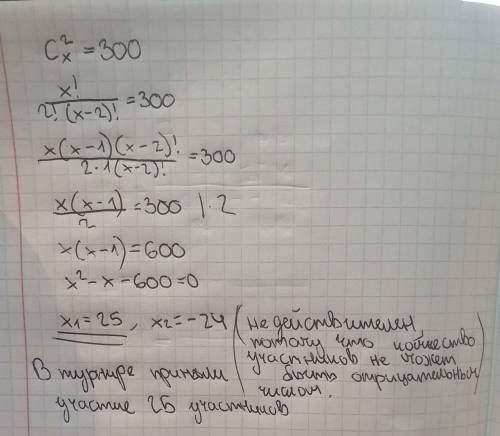 C²ₓ = 300
x! / 2!·(x-2)! = 300
x(x-1)(x-2)! / 2·1(x-2)! = 300
x(x-1) / 2 = 300 |·2
x(x-1) = 600
x² - x - 600 = 0
x₁ = 25, x₂ = -24 (не действителен,
потому что количество
участников не может
быть отрицательным
числом.)
В турнире приняли
участие 25 участников